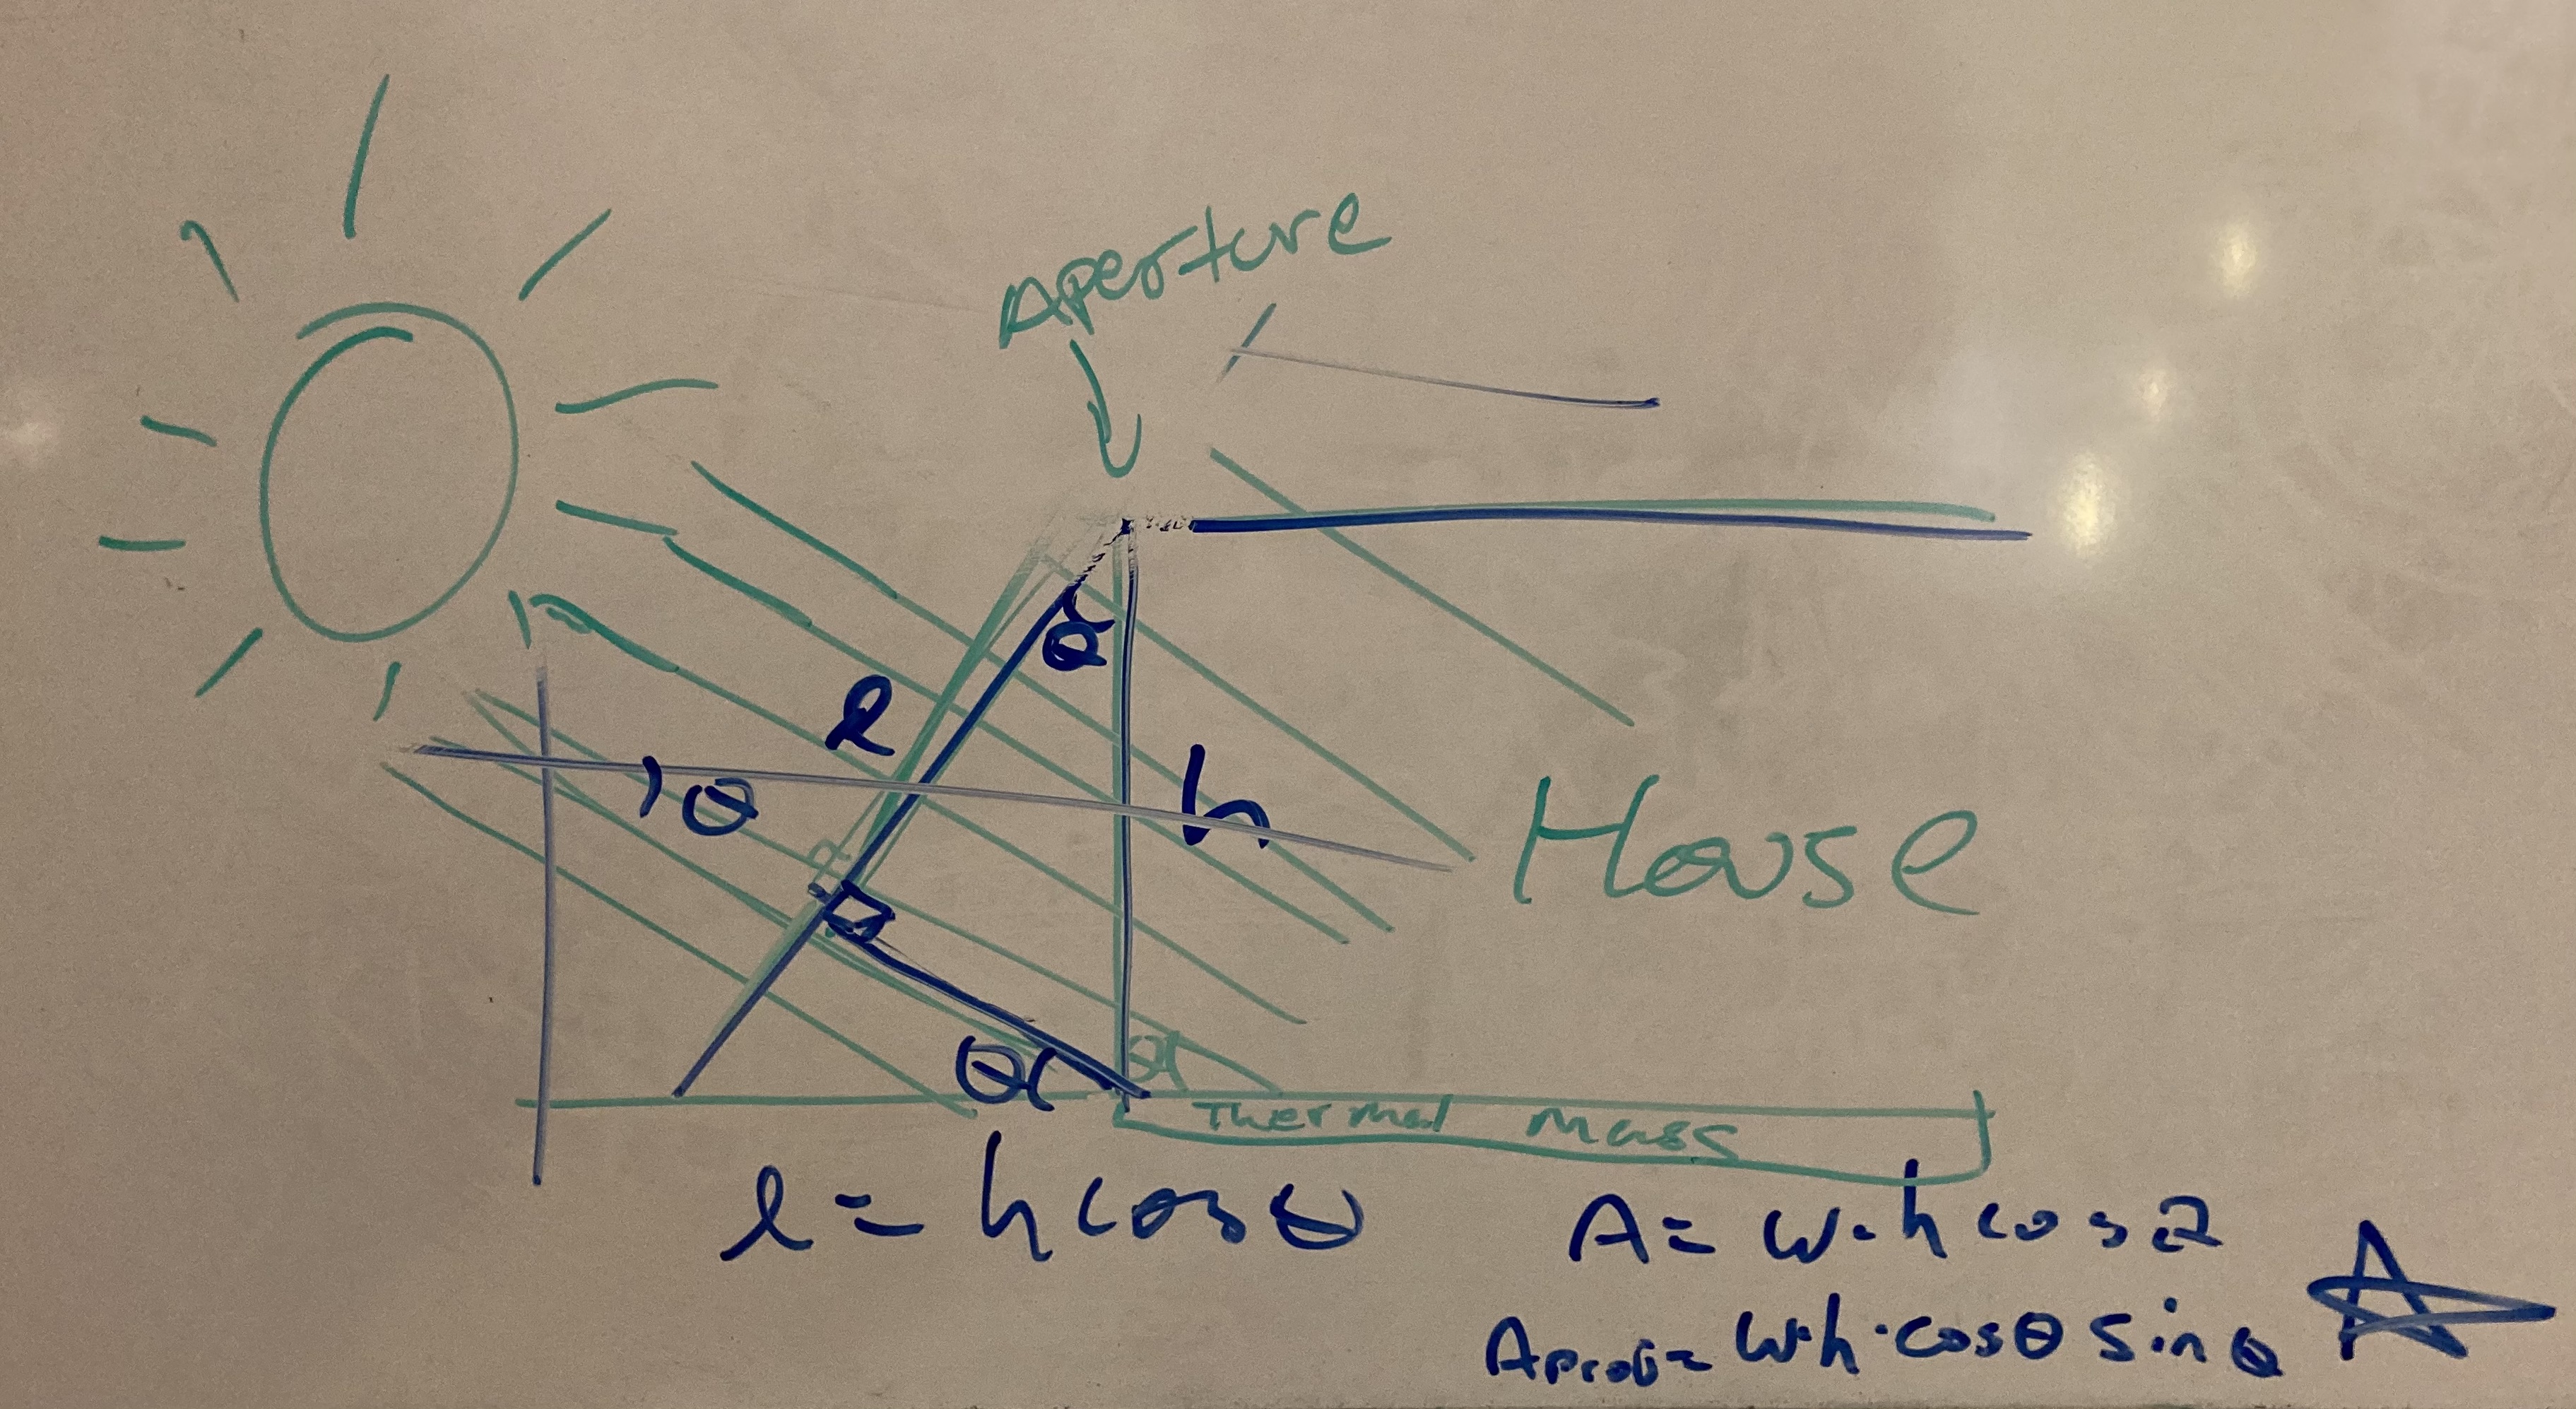 Aperture
θ
l
θ
h
House
θ
θ
Thermal Mass
l = h cos θ
A = w · h cos θ
A proj = w · h · cos θ sin θ